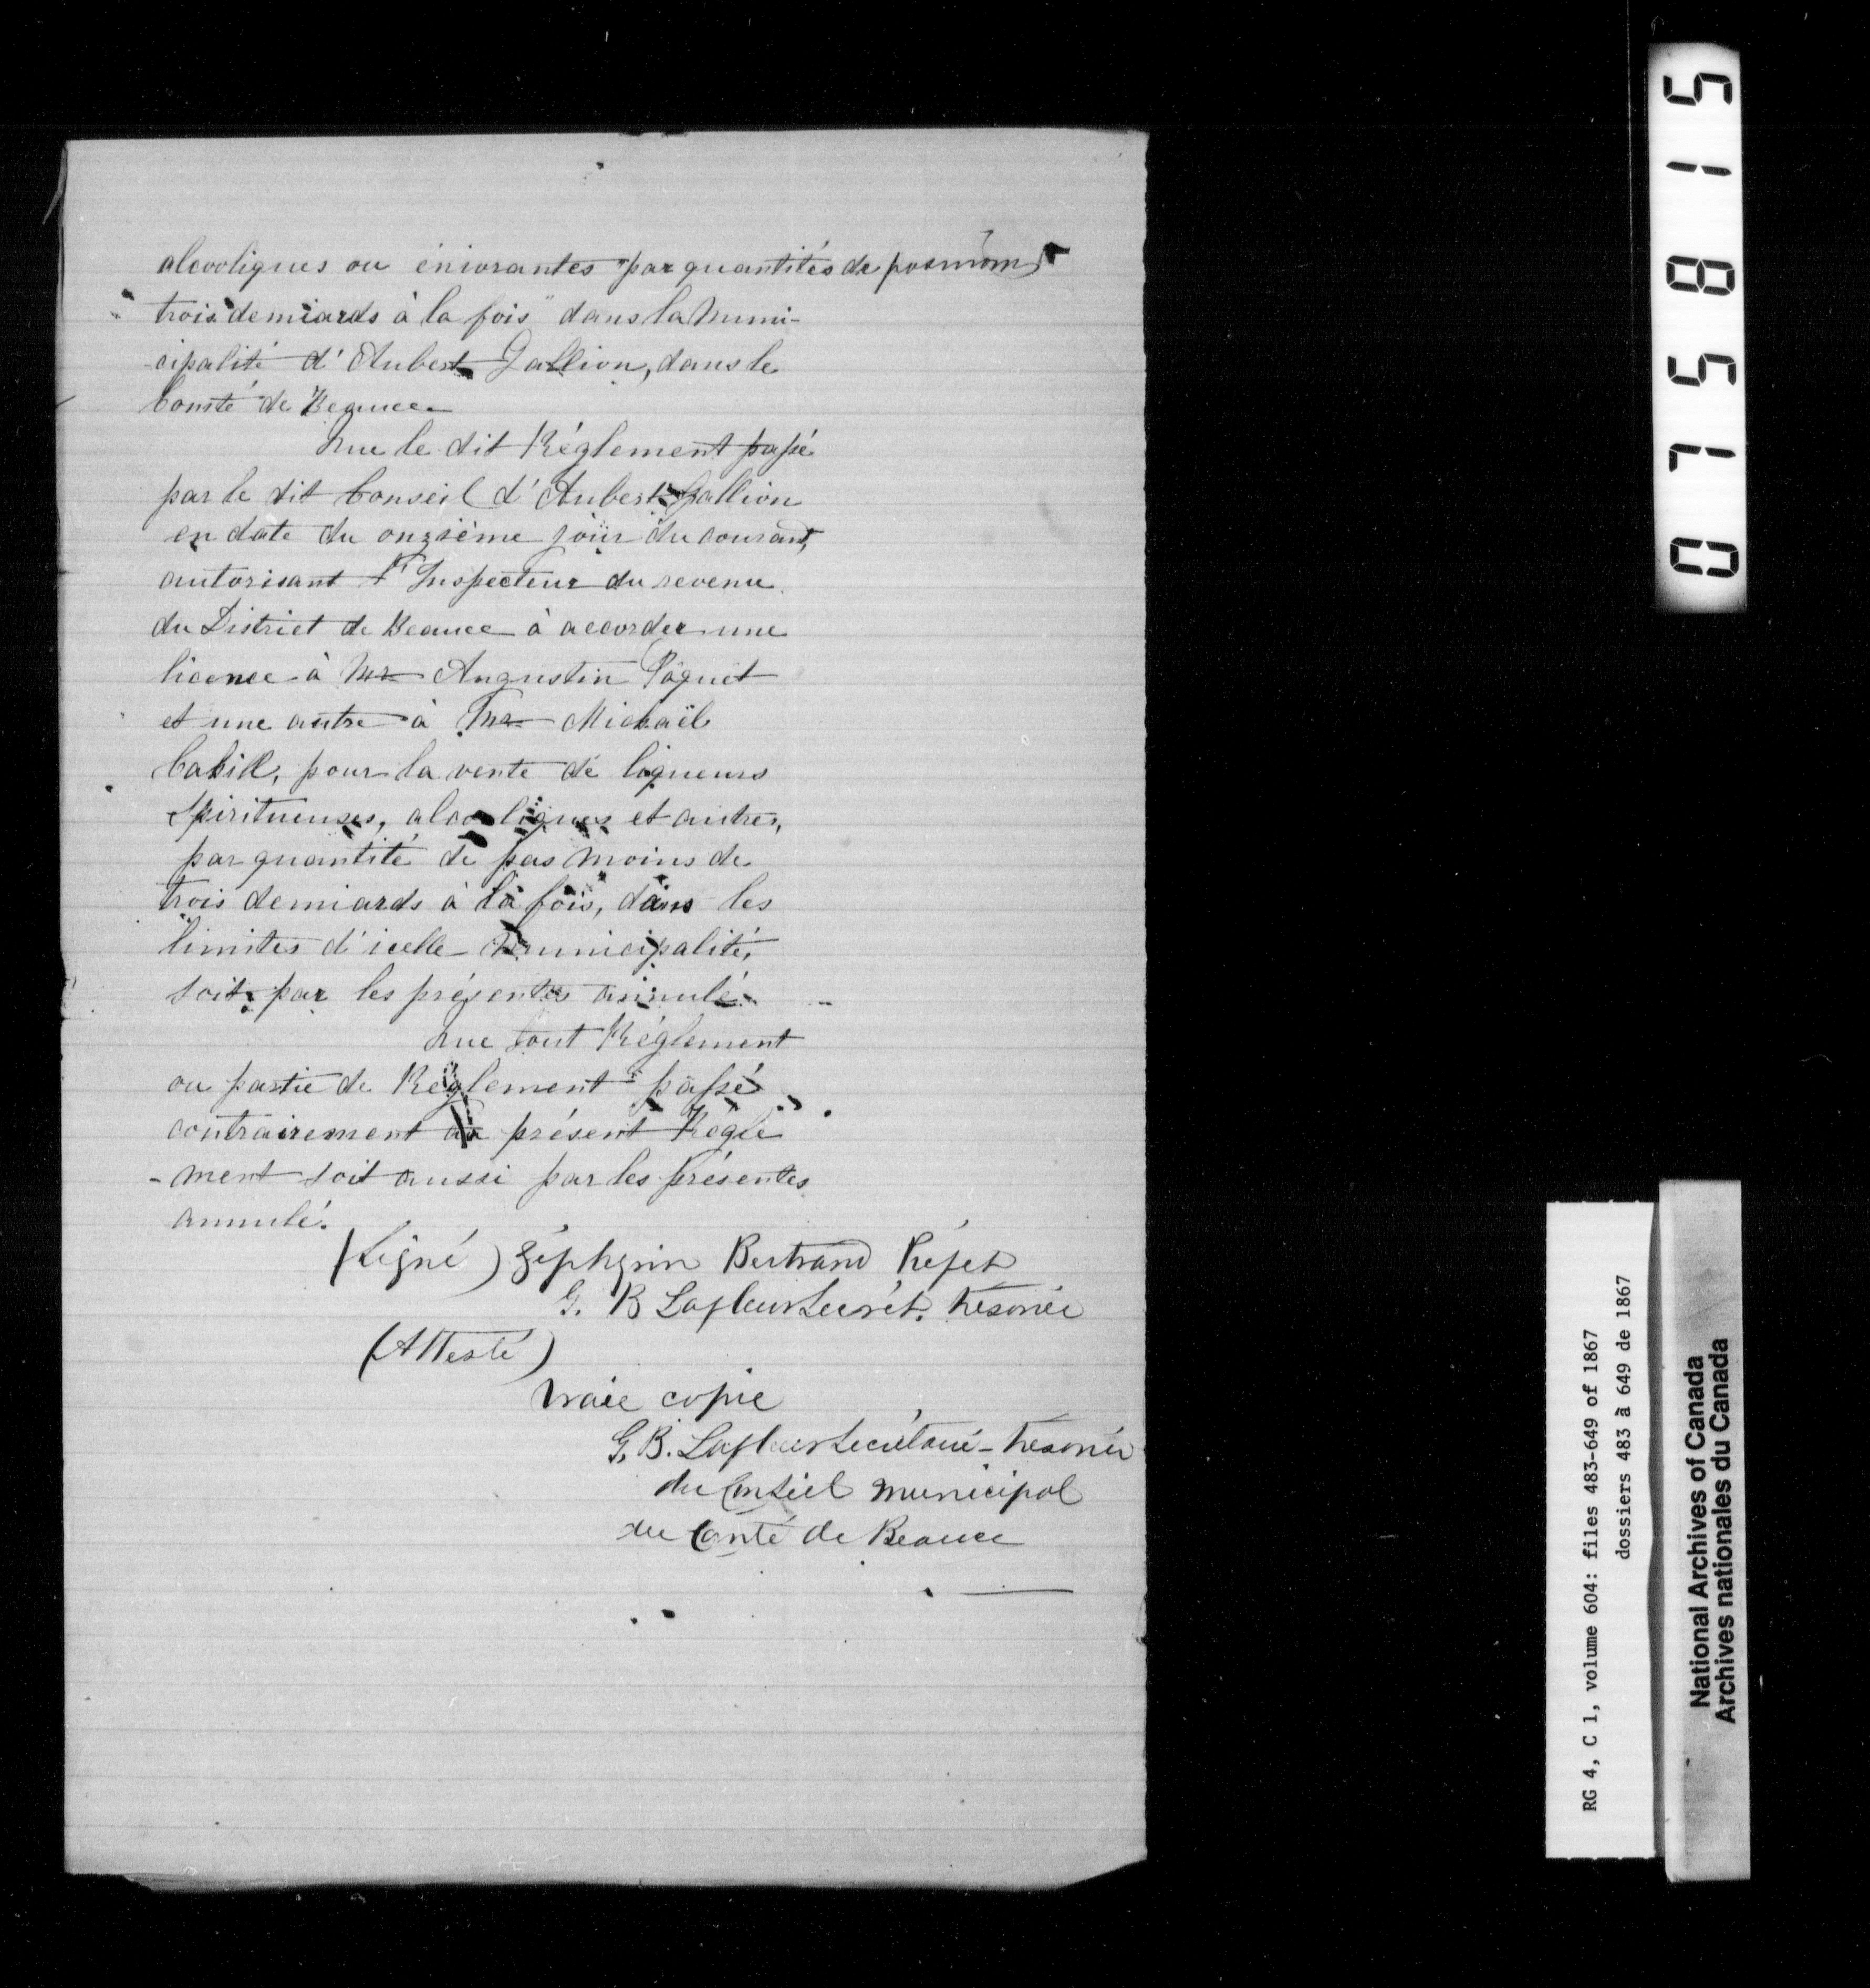 alcooliques ou énivrantes "par quantités de pas moins
trois demiards à la fois" dans la Muni-
cipalité d'Aubert Gallion, dans le
Comté de Beauce.
Que le dit Réglement passé
par le dit Conseil d'Aubert-Gallion
en date du onzième jour du courant,
autorisant l'Inspecteur du revenu
du District de Beauce à accorder une
licence à Mr Augustin Páquet
et une autre à Mr Michaël
Cahill, pour la vente de liqueurs
Spiritueuses, alcooliques et autres,
par quantité de pas moins de
trois demiards à la fois, dans les
limites d'icelle Municipalité,
soit par les présentes annulé.
Que tout Réglement
ou partie de Réglement passé
contrairement au présent Régle
-ment soit aussi par les présentes
annulé.
(Signé) Zéphyrin Bertrand Préfet
G. B Lafleur Secrét. Trésorier
(Attesté)
Vraie copie
G. B. Lafleur Secrétaire-Trésorier
du Conseil Municipal
du Comté de Beauce
075815
RG 4, C 1, volume 604: files 483-649 of 1867
dossiers 483 à 649 de 1867
National Archives of Canada
Archives nationales du Canada